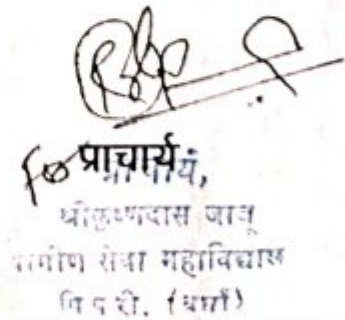 प्राचार्य
प्राचार्य,
श्रीकृष्णदास जाजू
ग्रामीण सेवा महाविद्यालय
पिपरी. (वर्धा)